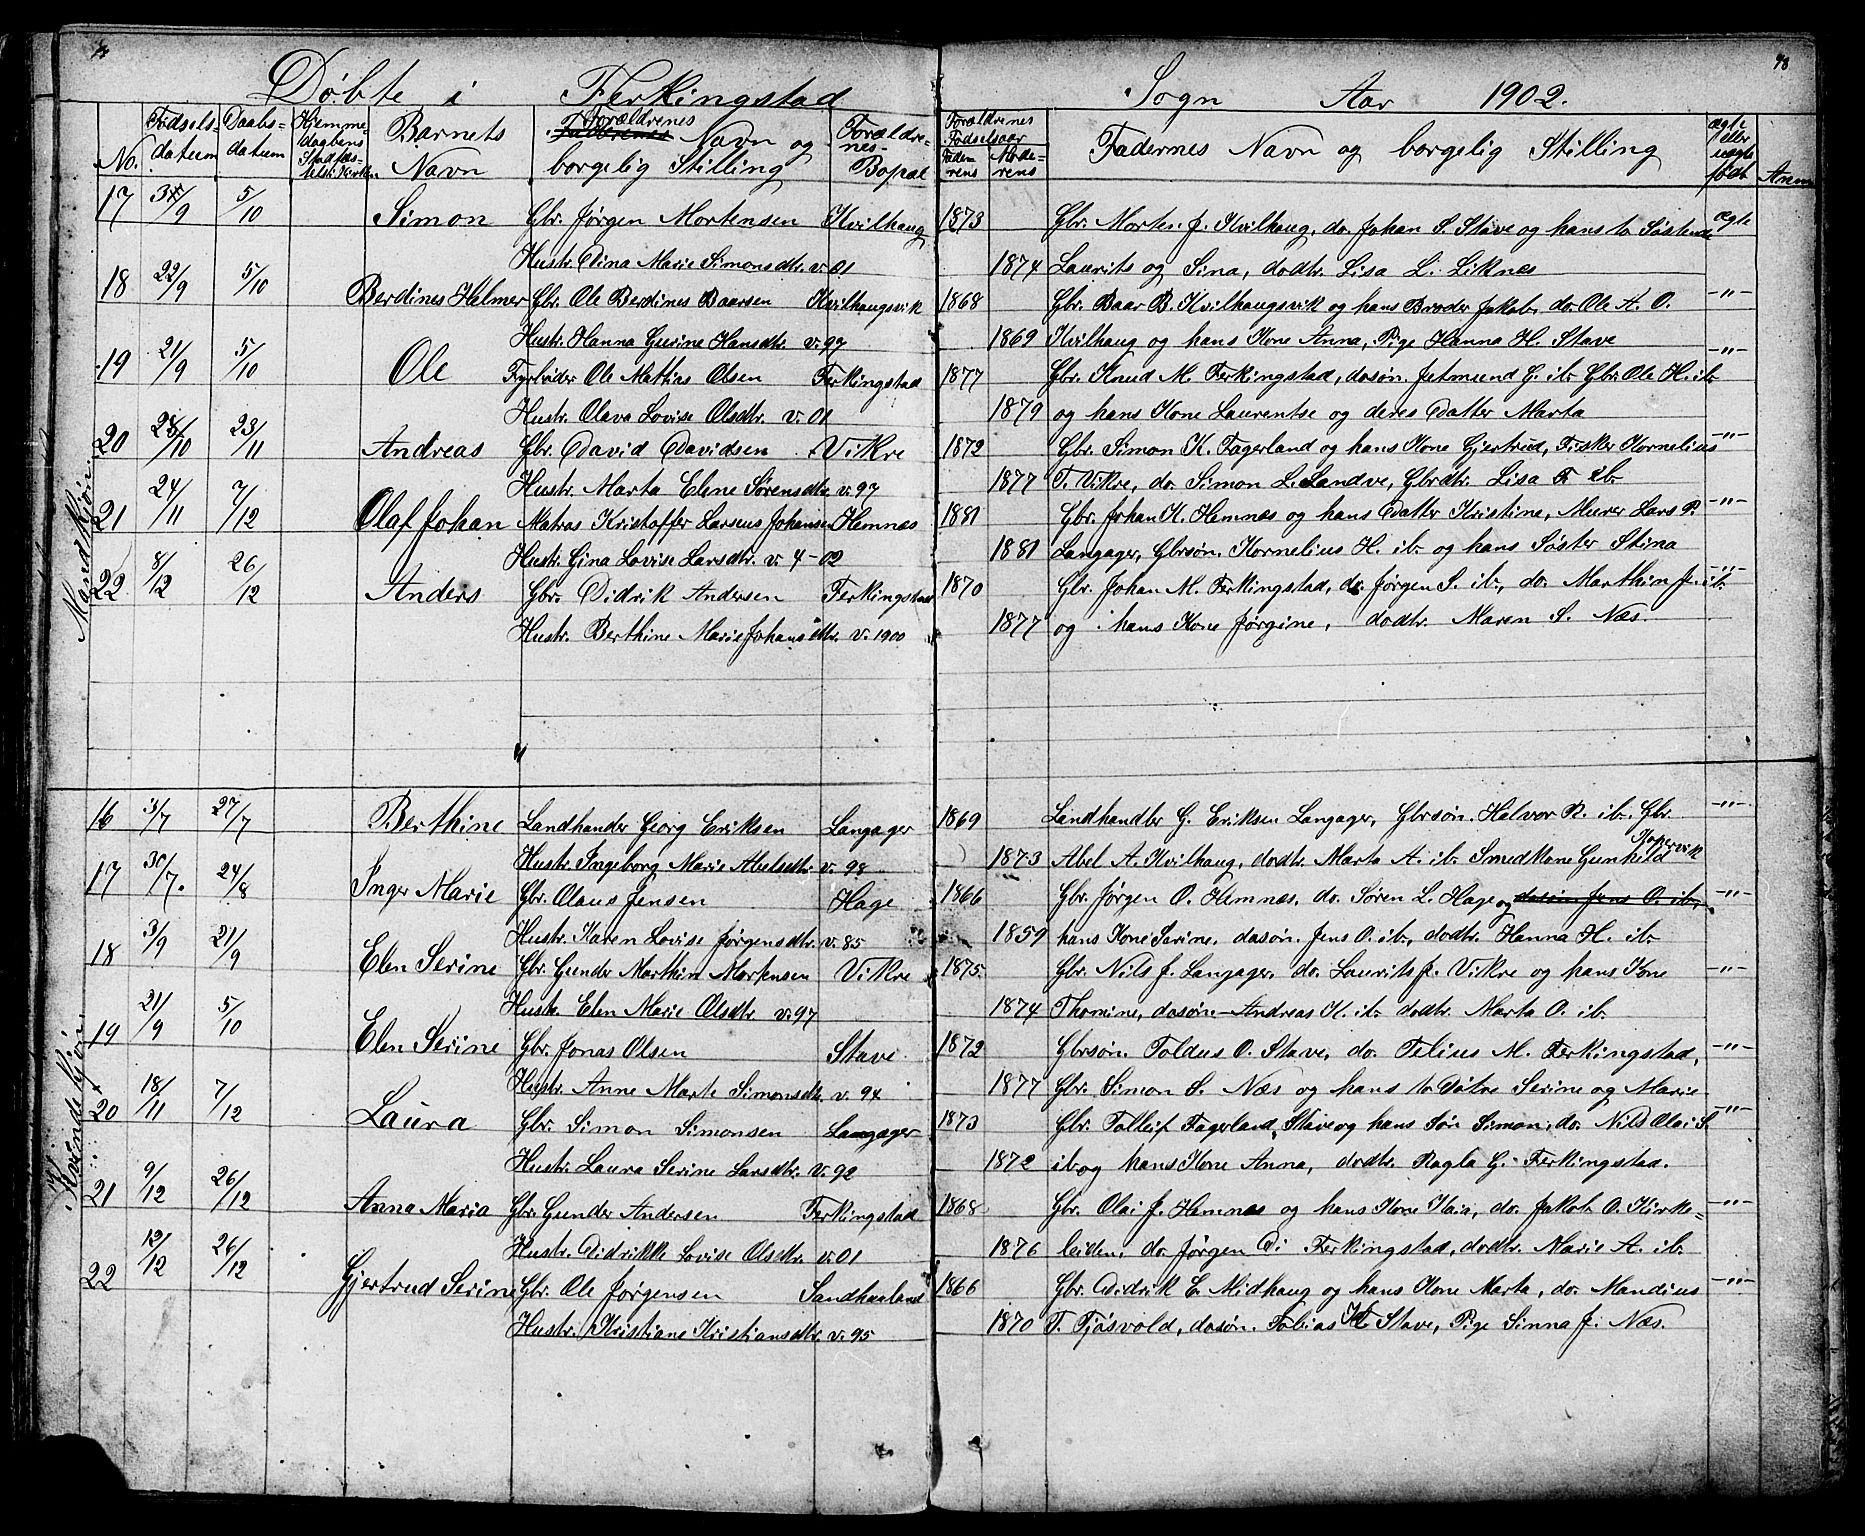 Døbte i Ferkingstad Sogn Aar 1902.
78
No. Fødsels-datum Daabs-datum Hjemme-daabens Stadfæs-telse i Kirken Barnets Navn Forældrenes Navn og borgelig Stilling Forældre-nes Bopæl Forældrenes Fødselsaar Faderens Moderens Faddernes Navn og borgelig Stilling Ægte eller uægte født Anm
Mandkjøn.
17 /9 5/10 Simon Gbr. Jørgen Mortensen Kvilhaug 1873 Gbr. Morten J. Kvilhaug, do. Johan S. Stave og hans to Søstende Ægte
Hustr. Dina Marie Simonsdtr. v. 01 1874 Laurits og Sina, dodtr. Lisa L. Liknes
18 22/9 5/10 Berdines Helmer Gbr. Ole Berdines Baarsen Kvilhaugsvik 1868 Gbr. Baar B. Kvilhaugsvik og hans Broder Jakob, do. Ole A. O. -"-
Hustr. Hanna Gurine Hansdtr. v. 97 1869 Kvilhaug og hans Kone Anna, Pige Hanna H. Stave
19 21/9 5/10 Ole Ole Mathias Olsen Ferkingstad 1877 Gbr. Knud M. Ferkingstad, dosøn. Jetmund G. ib. Gbr. Ole H. ib. -"-
Hustr. Olava Lovise Olsdtr. v. 01 1879 og hans Kone Laurentse og deres Datter Marta
20 /10 23/11 Andreas Gbr. David Davidsen Vikre 1872 Gbr. Simon K. Fagerland og hans Kone Gjertrud, Fisker Kornelius -"-
Hustr. Marta Elene Sørensdtr. v. 97 1877 T. Vikre, do. Simon L. Sandve, Gbrdtr. Lisa F. ib.
21 24/11 7/12 Olaf Johan Matros Kristoffer Larseus Johansen Hemnes 1881 Gbr. Johan K. Hemnes og hans Datter Kristine, Murer Lars P. -"-
Hustr. Gina Lovise Larsdtr. v. 4-02 1881 Langager, Gbrsøn. Kornelius H. ib. og hans Søster Stina
22 8/12 26/12 Anders Gbr. Didrik Andersen Ferkingstad 1870 Gbr. Johan M. Ferkingstad, do. Jørgen S. ib., do. Marthin J. ib. -"-
Hustr. Berthine Marie Johansdtr. v. 1900 1877 og hans Kone Jørgine, dodtr. Maren S. Næs.
Kvindekjøn.
16 3/7 27/7 Berthine Landhander Georg Eriksen Langager 1869 Landhandler G. Eriksen Langager, Gbrsøn. Halvor R. ib. Gbr. -"-
Hustr. Ingeborg Marie Abelsdtr. v. 98 1873 Abel A. Kvilhaug, dodtr. Marta A. ib. Smedkone Gunhild Kopervik
17 30/7. 24/8 Inger Marie Gbr. Olaus Jensen Hage 1866 Gbr. Jørgen O. Hemnes, do. Søren L. Hage og dosøn Jens O. ib. -"-
Hustr. Karen Lovise Jørgensdtr. v. 85 1859 hans Kone Serine, dosøn. Jens O. ib., dodtr. Hanna H. ib.
18 3/9 21/9 Elen Serine Gbr. Gunder Marthin Mortensen Vikre 1875 Gbr. Nils J. Langager, do. Laurits J. Vikre og hans Kone -"-
Hustr. Elen Marie Olsdtr. v. 97 1874 Thomine, dosøn. Andreas K. ib. dodtr. Marta O. ib.
19 21/9 5/10 Elen Serine Gbr. Jonas Olsen Stave 1872 Gbrsøn. Toldus O. Stave, do. Telius M. Ferkingstad, -"-
Hustr. Anne Marte Simonsdtr. v. 94 1877 Gbr. Simon S. Næs og hans to Døtre Serine og Marie
20 18/11 7/12 Laura Gbr. Simon Simonsen Langager 1873 Gbr. Tolleif Fagerland, Stave og hans Søn Simon, do. Nils Olai S. -"-
Hustr. Laura Serine Larsdtr. v. 92 1872 ib. og hans Kone Anna, dodtr. Ragla G. Ferkingstad.
21 9/12 26/12 Anna Maria Gbr. Gunder Andersen Ferkingstad 1868 Gbr. Olai J. Hemnes og hans Kone Kaia, do. Jakob O. Kirke= -"-
Hustr. Didrikke Lovise Olsdtr. v. 01 1876 leiden, do. Jørgen Di Ferkingstad, dodtr. Marie A. ib.
22 12/12 26/12 Gjertrud Serine Gbr. Ole Jørgensen Sandhaaland 1866 Gbr. Didrik E. Midhaug og hans Kone Marta, do. Mandius -"-
Hustr. Kristiane Kristiansdtr. v. 95 1870 T. Tjøsvold, dosøn. Tobias Stave, Pige Sinna J. Næs.